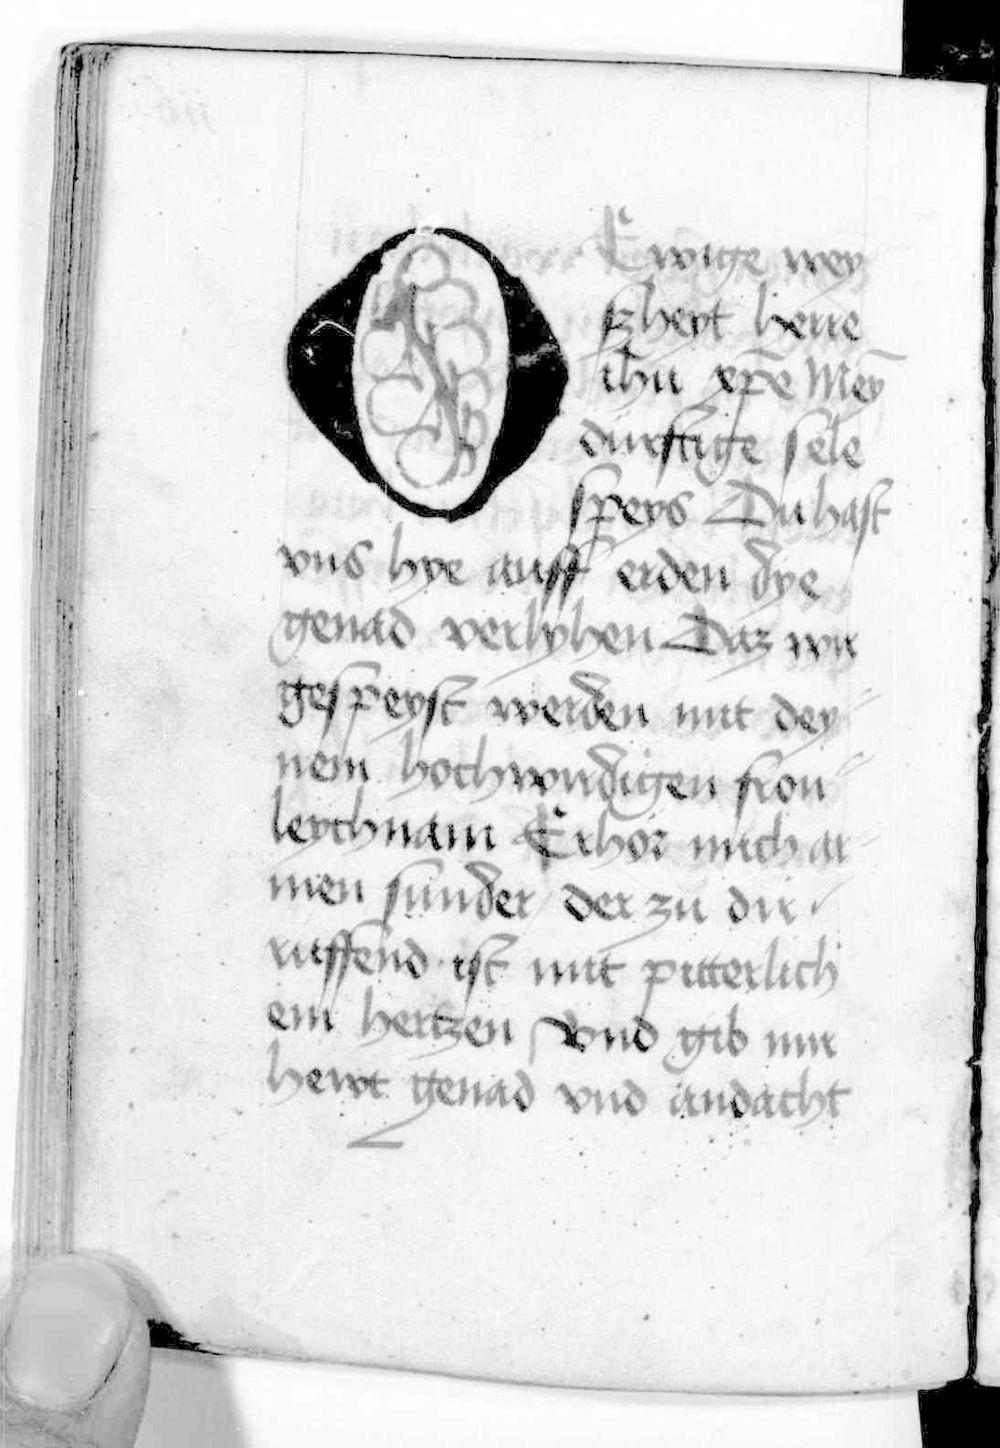 O Ewige wey
ſzheyt herre
ihu xp̄e Mey̅
durſtige ſele
ſpeys Du haſt
vns hye auff erden dye
genad verlyhen Daz wir
geſpeyſt werden mit dey
nem hochwirdigen fron
leychnam Erhör mich ar
men ſunder der zu dir
ruffend iſt mit pitterlich
em hertzen Vnd gib mir
hewt genad vnd andacht